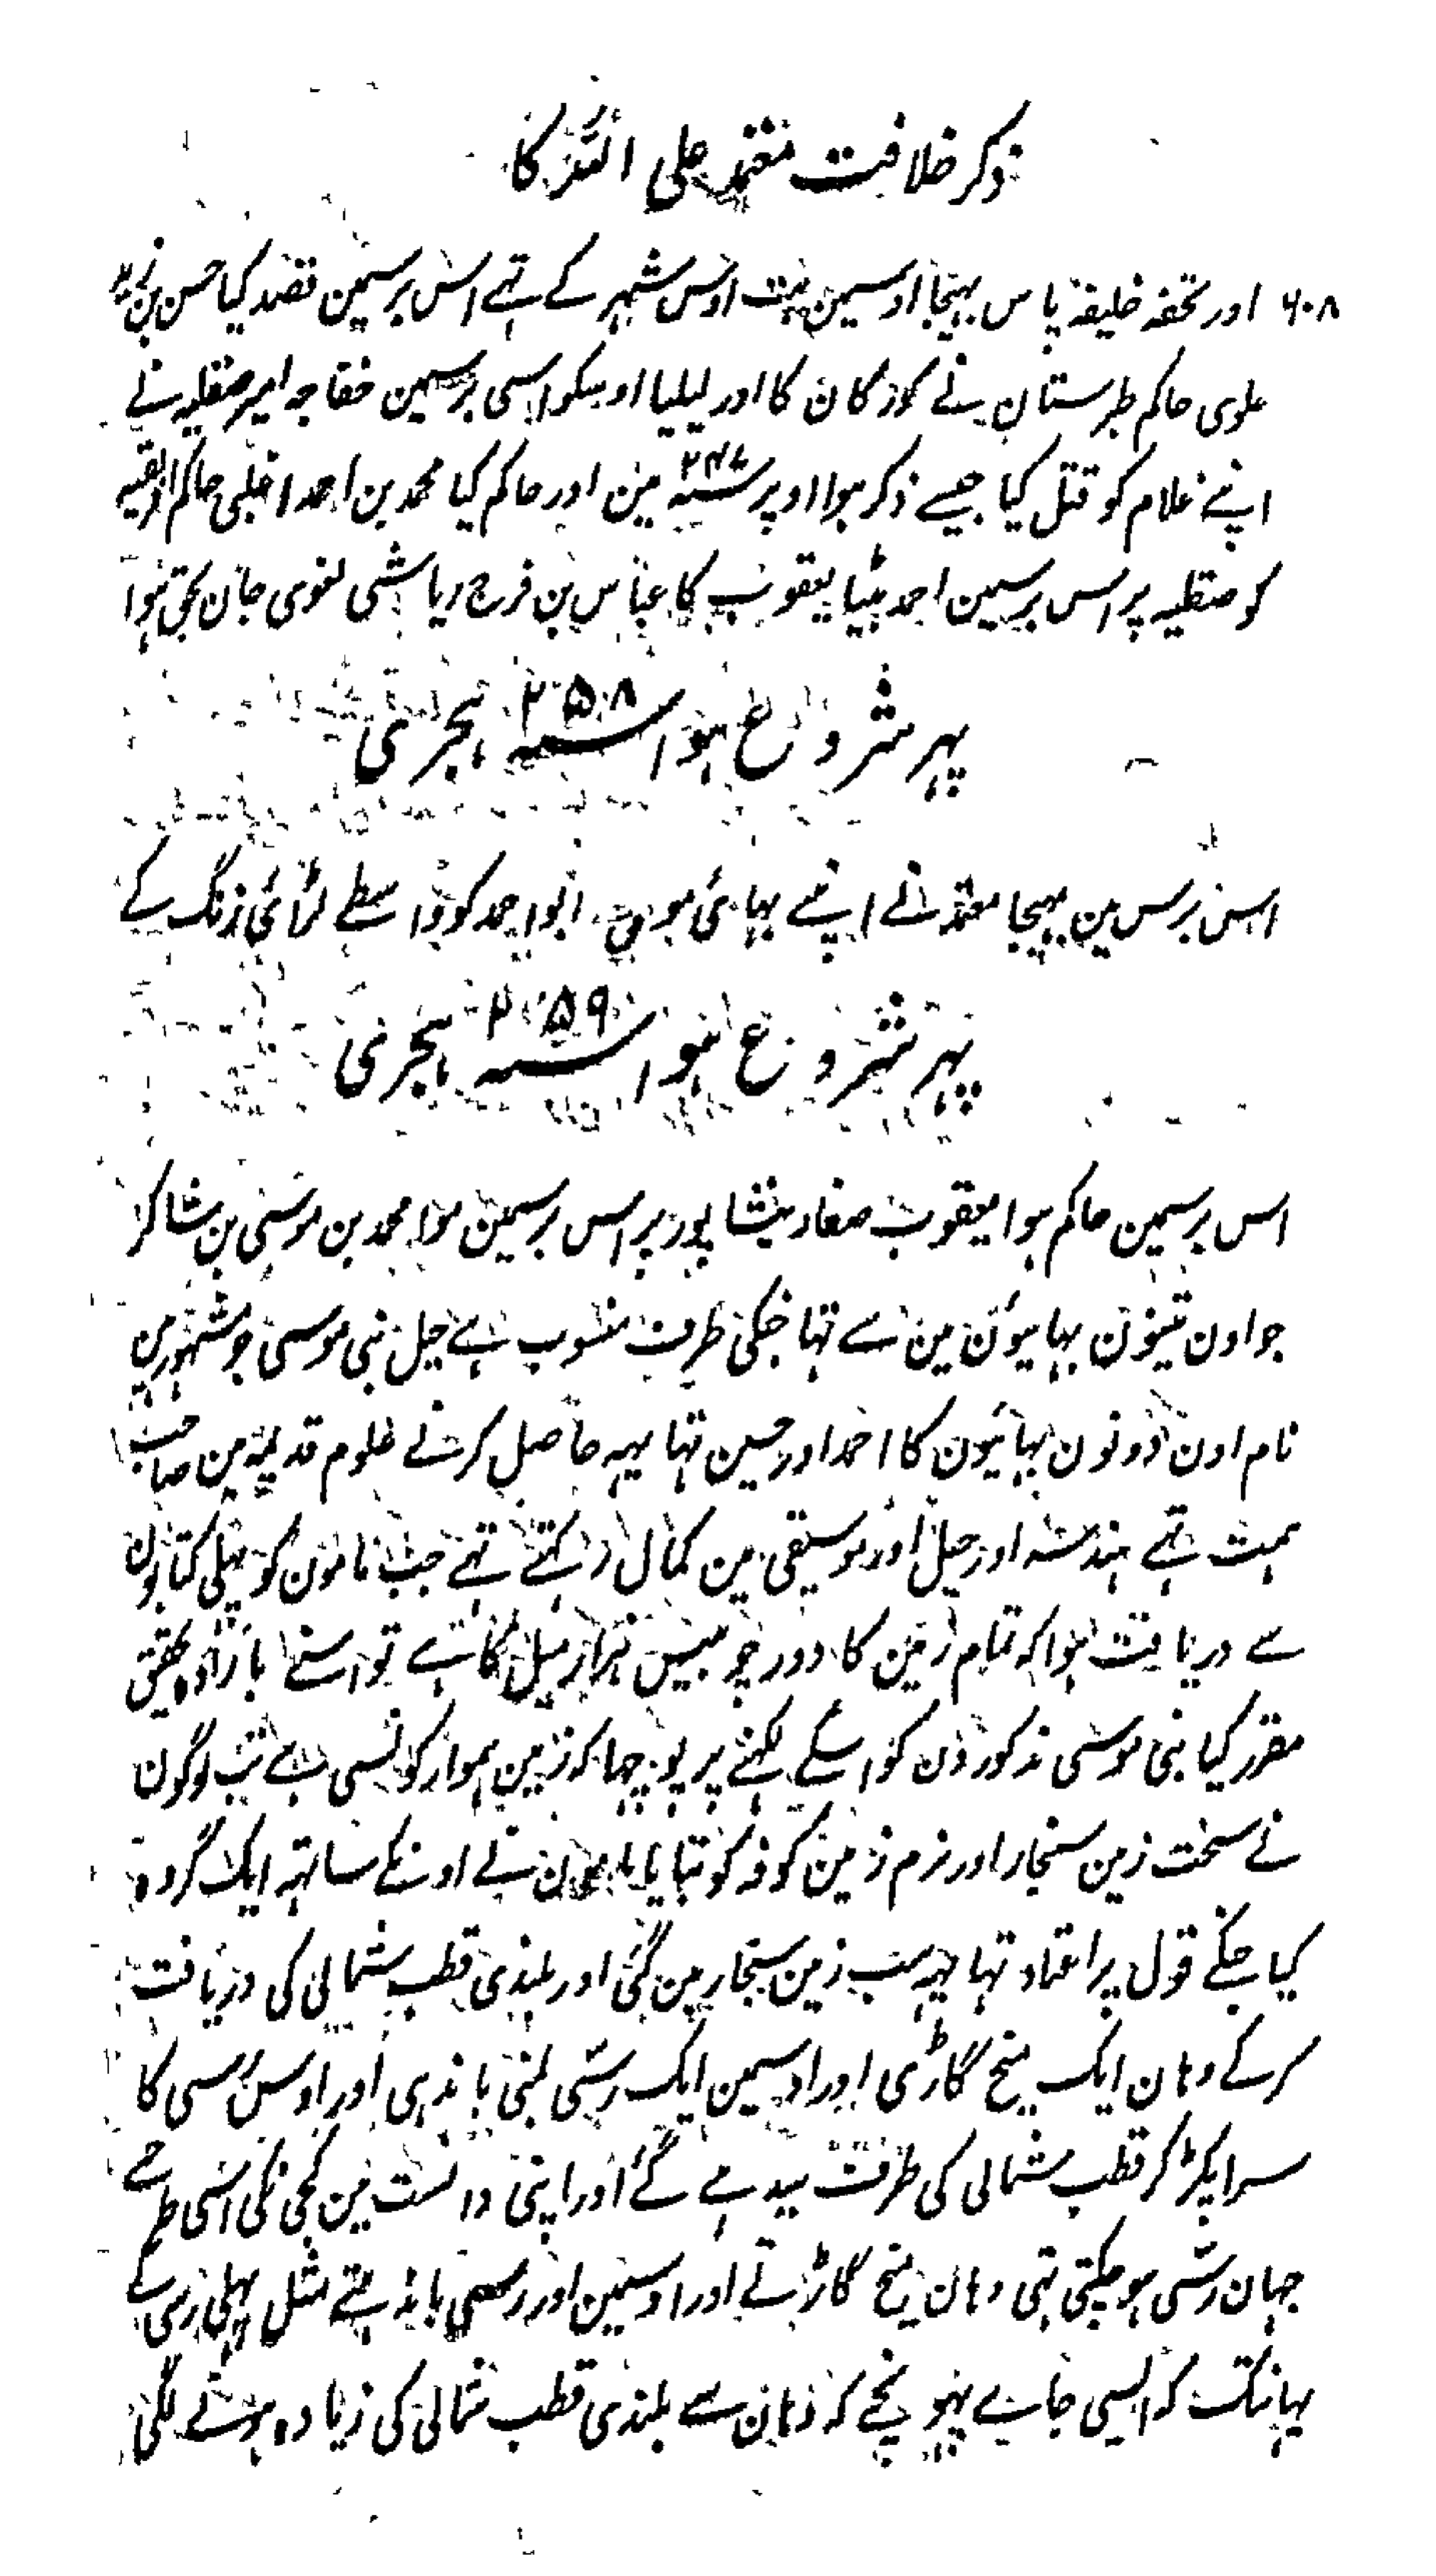 ذکر خلافت معتمد علی اللہ کا
۶۰۸ اور تحفہ خلیفہ پاس بہیجا اوسمین بت اوس شہر کے تہے اس برسمین قصد کیا حسن بن زید
علوی حاکم طبرستان نے کورکان کا اور لیلیا اوسکو اسی برسمین خفاجہ امیر صقلیہ نے
اپنے غلام کو قتل کیا جیسے ذکر ہوا اوپر سنہ ۲۴۷ مین اور حاکم کیا محمد بن احمد اغلبی حاکم افریقیہ
کو صقلیہ پر اس برسمین احمد بیٹا یعقوب کا عباس بن فرج ریاشی لغوی جان بحق ہوا
پہر شروع ہوا سنہ ۲۵۸ ہجری
اس برس مین بہیجا معتمد نے اپنے بہائی موفق ابو احمد کو واسطے لڑائی زنگ کے
پہر شروع ہوا سنہ ۲۵۹ ہجری
اس برسمین حاکم ہوا یعقوب صفار نیشاپور پر اس برسمین موا محمد بن موسی بن شاکر
جو اون تینون بہائیون مین سے تہا جنکی طرف منسوب ہے حیل بنی موسی جو مشہور ہین
نام اون دونون بہائیون کا احمد اور حسین تہا یہہ حاصل کرنے علوم قدیمہ مین صاحب
ہمت تہے ہندسہ اور حیل اور موسیقی مین کمال رکہتے تہے جب مامون کو پہلی کتابون
سے دریافت ہوا کہ تمام زمین کا دور چوبیس ہزار میل کا ہے تو اسنے بارادہ تحقیق
مقرر کیا بنی موسی مذکورون کو اسکے لکہنے پر پوچہا کہ زمین ہموار کونسی ہے تب لوگون
نے سخت زمین سنجار اور نرم زمین کوفہ کو بتایا مامون نے اونکے ساتہہ ایک گروہ
کیا جنکے قول پر اعتماد تہا یہہ سب زمین سنجار مین گئی اور بلندی قطب شمالی کی دریافت
کرکے وہان ایک میخ گاڑی اور اوسمین ایک رسی لنبی باندہی اور اوس رسی کا
سرا پکڑ کر قطب شمالی کی طرف سیدہے گئے اور اپنی دانست مین کجی نکی اسی طرح سے
جہان رسی ہو چکتی تہی وہان میخ گاڑتے اور اوسمین اور رسی باندہتے مثل پہلی رسی کے
یہانتک کہ ایسی جاے پہونچے کہ وہان سے بلندی قطب شمالی کی زیادہ ہونے لگی